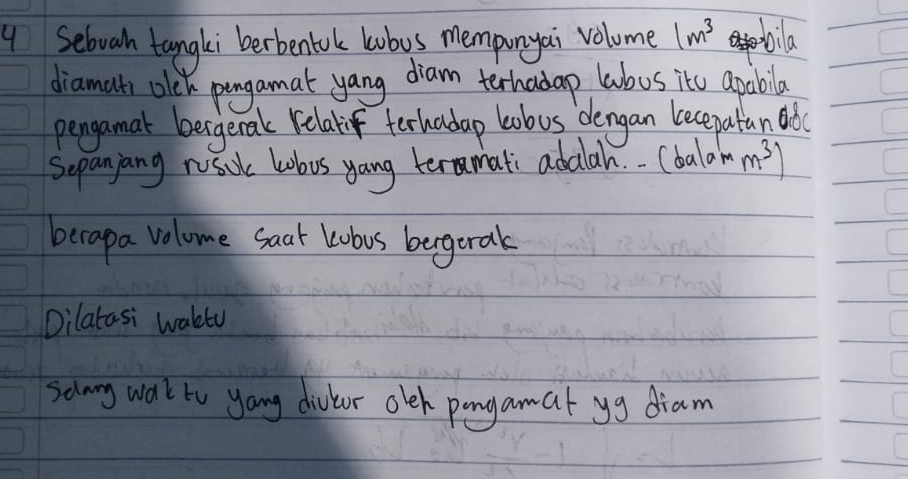 4 Sebuah tangki berbentuk kubus mempunyai volume 1m³ bila
diamati oleh pengamat yang diam terhadap kubus itu apabila
pengamat bergerak relatif terhadap kubus dengan kecepatan 0.8c
Sepanjang rusuk kubus yang teramati adalah.. (dalam m³)
berapa volume saat kubus bergerak
Dilatasi waktu
Selang waktu yang diukur oleh pengamat yg diam